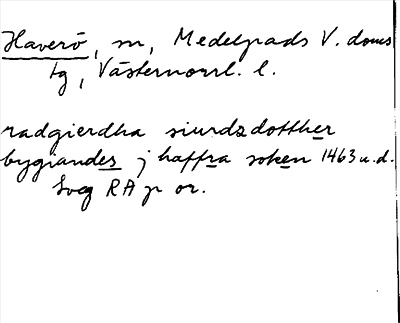 Haverö, m, Medelpads V. doms
tg, Västernorrl. l.
radgierdha siurdzdotther
bygiandes j haffra soken 1463 u.d.
Sveg RA p or.